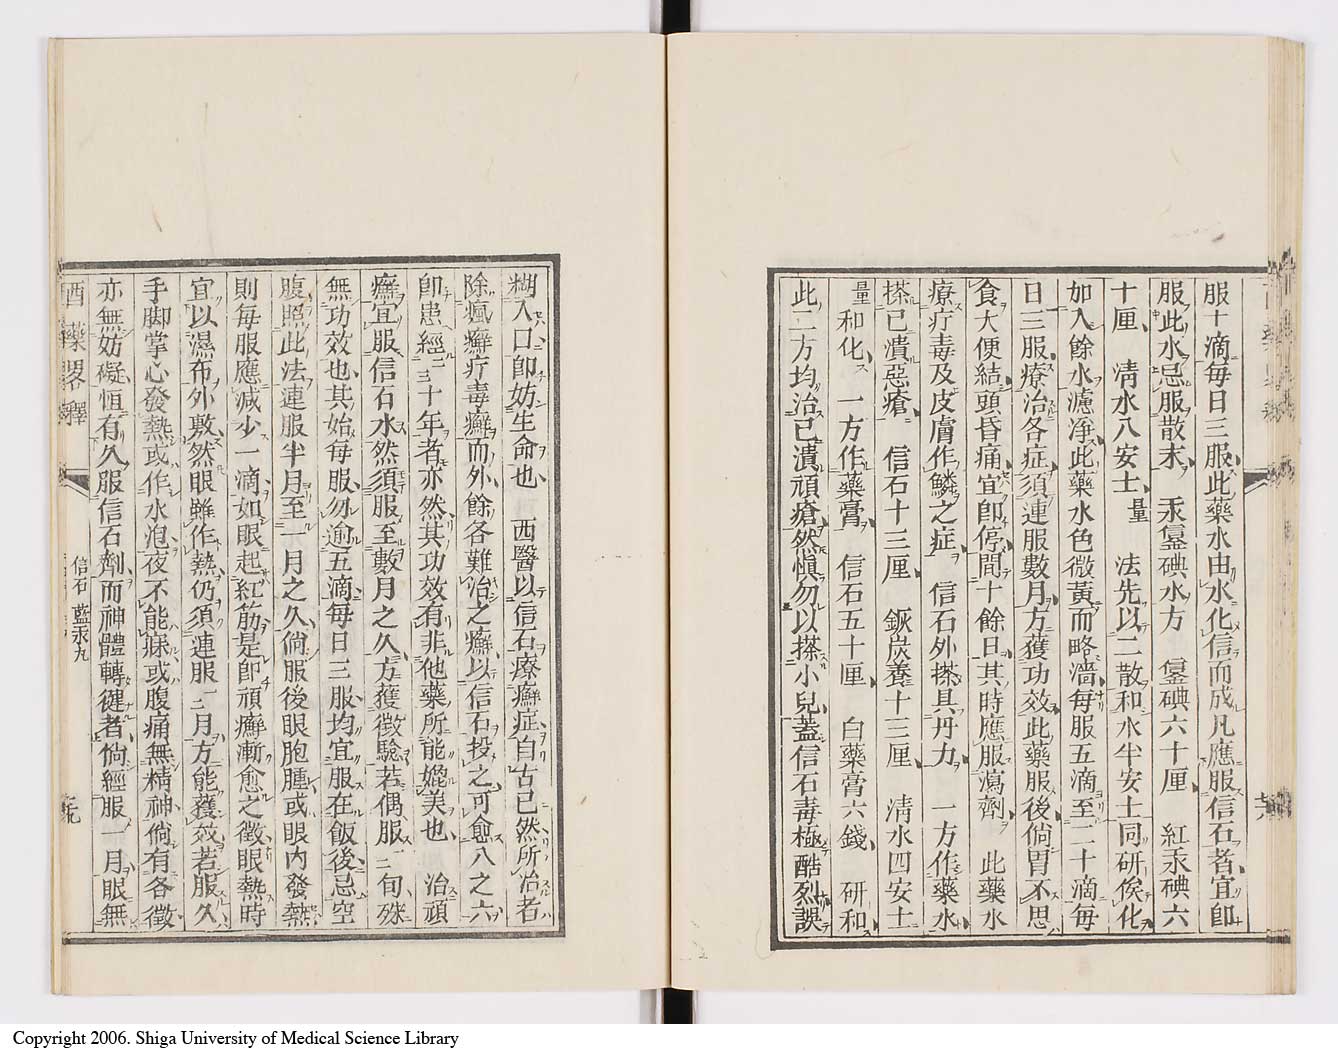 服十滴每日三服此藥水由水化信而成凡應服信石者宜卽
服此水忌服散末　汞𨯳碘水方　𨯳碘六十厘　紅汞碘六
十厘　淸水八安士量　法先以二散和水半安士同研俟化
如入餘水濾淨此藥水色微黃而略濇每服五滴至二十滴每
日三服療治各症須連服數月方獲功效此藥服後倘胃不思
食大便結頭昏痛宜卽停間十餘日其時應服瀉劑　此藥水
療疔毒及皮膚作鱗之症　信石外搽具丹力　一方作藥水
搽已潰惡瘡　信石十三厘　鉃炭養十三厘　淸水四安士
量和化　一方作藥膏　信石五十厘　白藥膏六錢　研和
此二方均治已潰頑瘡然愼勿以搽小兒蓋信石毒極酷烈誤
糊入口卽妨生命也　西醫以信石療癬症自古已然所治者
除瘋癬疔毒癬而外餘各難治之癬以信石投之可愈八之六
卽患經二三十年者亦然其功效有非他藥所能媲美也　治頑
癬宜服信石水然須服至數月之久方獲徵驗若偶服一二旬殊
無功效也其始每服勿逾五滴每日三服均宜服在飯後忌空
腹照此法連服半月至一月之久倘服後眼胞腫或眼內發熱
則每服應減少一滴如眼起紅筋是卽頑癬漸愈之徵眼熱時
宜以濕布外敷然眼雖作熱仍須連服一二月方能獲效若服久
手脚掌心發熱或作水泡夜不能寐或腹痛無精神倘有各徵
亦無妨礙恒有久服信石劑而神體轉健者倘經服一月眼無
西藥畧釋
信石　藍汞丸